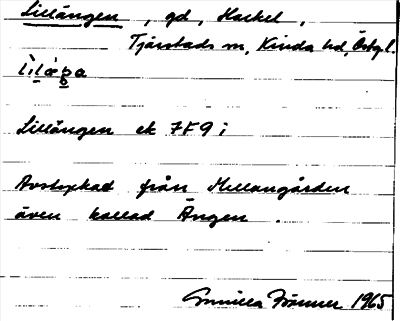 Lillängen, gd, Hackel,
Tjärstads sn, Kinda hd, Östgl.
Lillängen ek 7F9i
Avstyckad från Mellangården
även kallad Ängen.
1965